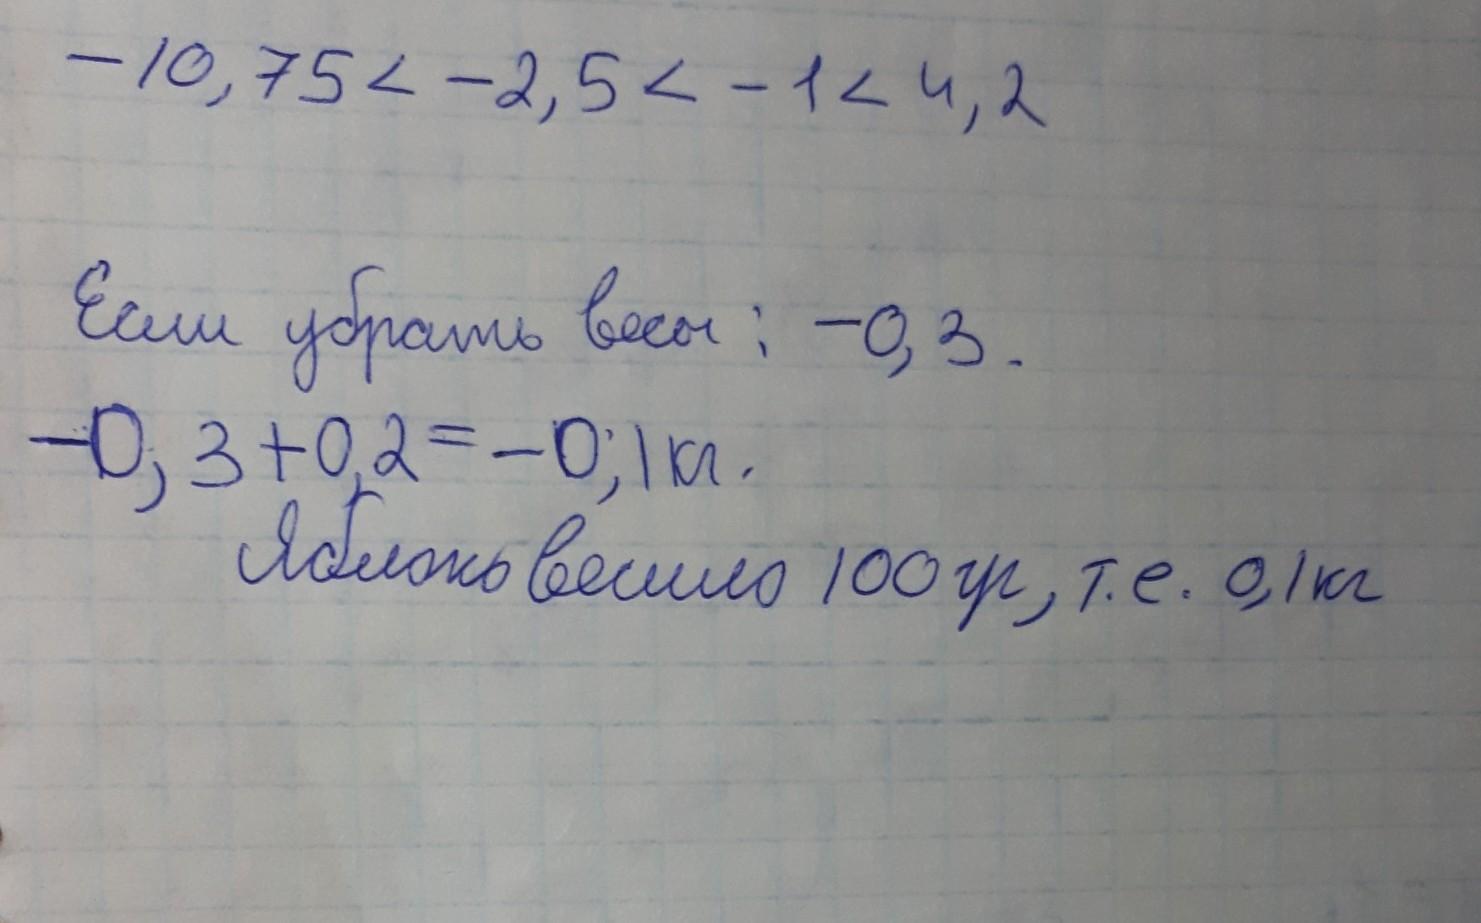 -10,75 < -2,5 < -1 < 4,2
Если убрать весы: -0,3.
-0,3+0,2=-0,1кг.
Яблоко весило 100гр, т.е. 0,1кг